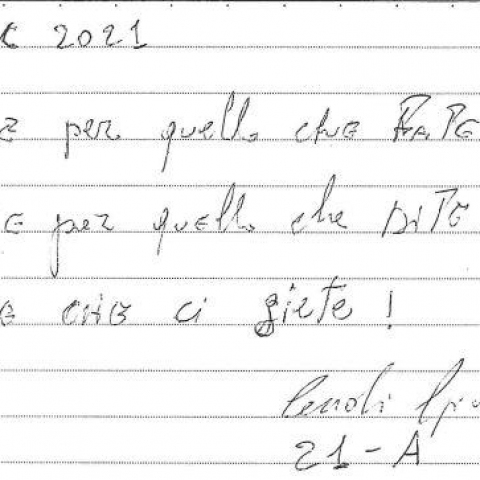 C 2021
E per quello che FATE
E per quello che DITE
E CHE ci siete !
21 - A